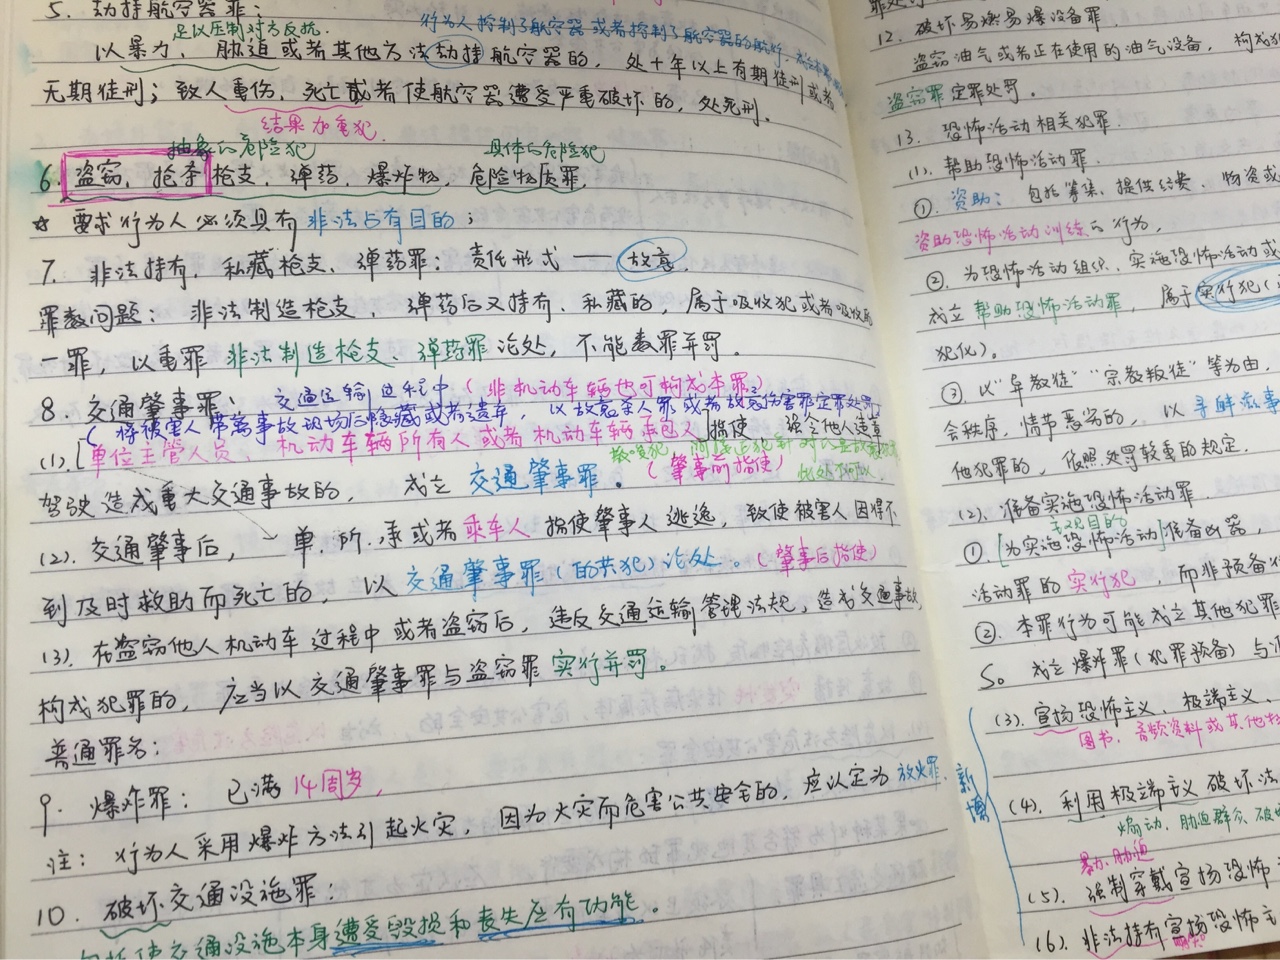 5. 劫持航空器罪：
足以压制对方反抗. 行为人控制了航空器或者控制了航空器的航行
以暴力、胁迫或者其他方法劫持航空器的，处十年以上有期徒刑或者
无期徒刑；致人重伤、死亡或者使航空器遭受严重破坏的，处死刑.
结果加重犯.
抽象的危险犯 具体的危险犯
6. 盗窃、抢夺枪支、弹药、爆炸物、危险物质罪.
☆ 要求行为人必须具有非法占有目的；
7. 非法持有、私藏枪支、弹药罪：责任形式——故意.
罪数问题：非法制造枪支、弹药后又持有、私藏的，属于吸收犯或者吸收的
一罪，以重罪非法制造枪支、弹药罪论处，不能数罪并罚.
8. 交通肇事罪：交通运输过程中（非机动车辆也可构成本罪）
（将被害人带离事故现场后隐藏或者遗弃，以故意杀人罪或者故意伤害罪定罪处罚）
(1). [单位主管人员、机动车辆所有人或者机动车辆承包人]指使、强令他人违章
教唆犯 （肇事前指使） 此处不同
驾驶造成重大交通事故的，成立交通肇事罪.
(2). 交通肇事后，单.所.承或者乘车人指使肇事人逃逸，致使被害人因得不
到及时救助而死亡的，以交通肇事罪（的共犯）论处.（肇事后指使）
(3). 在盗窃他人机动车过程中或者盗窃后，违反交通运输管理法规，造成交通事故
构成犯罪的，应当以交通肇事罪与盗窃罪实行并罚.
普通罪名：
9. 爆炸罪：已满14周岁，
注：行为人采用爆炸方法引起火灾，因为火灾而危害公共安全的，应认定为放火罪.
10. 破坏交通设施罪：
包括使交通设施本身遭受毁损和丧失应有功能.
12. 破坏易燃易爆设备罪
盗窃油气或者正在使用的油气设备，构成犯
盗窃罪定罪处罚.
13. 恐怖活动相关犯罪.
(1). 帮助恐怖活动罪.
①. 资助：包括筹集、提供经费、物资或
资助恐怖活动训练的行为.
②. 为恐怖活动组织、实施恐怖活动或
成立帮助恐怖活动罪，属于实行犯（
犯化）.
③. 以“异教徒”“宗教叛徒”等为由，
会秩序，情节恶劣的，以寻衅滋事
他犯罪的，依照处罚较重的规定.
(2). 准备实施恐怖活动罪.
主观目的
①. [为实施恐怖活动]准备凶器，
活动罪的实行犯，而非预备犯
②. 本罪行为可能成立其他犯罪
So 成立爆炸罪（犯罪预备）与
(3). 宣扬恐怖主义、极端主义、
图书、音频资料或其他
新增
(4). 利用极端主义破坏法
煽动、胁迫群众破坏
暴力.胁迫
(5). 强制穿戴宣扬恐怖
(6). 非法持有宣扬恐怖主